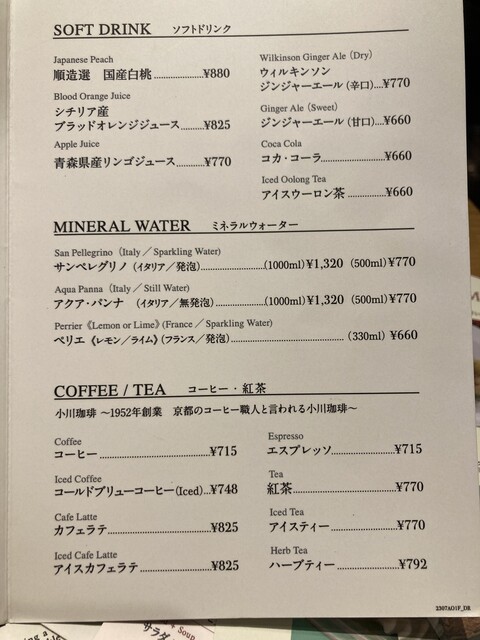 SOFT DRINK ソフトドリンク
Japanese Peach
順造選 国産白桃....................¥880
Blood Orange Juice
シチリア産
ブラッドオレンジジュース.......¥825
Apple Juice
青森県産リンゴジュース..........¥770
Wilkinson Ginger Ale (Dry)
ウィルキンソン
ジンジャーエール (辛口)....¥770
Ginger Ale (Sweet)
ジンジャーエール (甘口)....¥660
Coca Cola
コカ・コーラ....................¥660
Iced Oolong Tea
アイスウーロン茶..............¥660
MINERAL WATER ミネラルウォーター
San Pellegrino (Italy/Sparkling Water)
サンペレグリノ (イタリア/発泡)..................(1000ml) ¥1,320 (500ml) ¥770
Aqua Panna (Italy/Still Water)
アクア・パンナ (イタリア/無発泡)...............(1000ml) ¥1,320 (500ml) ¥770
Perrier 《Lemon or Lime》 (France/Sparkling Water)
ペリエ 《レモン/ライム》 (フランス/発泡)..............................(330ml) ¥660
COFFEE / TEA コーヒー・紅茶
小川珈琲 ～1952年創業 京都のコーヒー職人と言われる小川珈琲～
Coffee
コーヒー..............................¥715
Iced Coffee
コールドブリューコーヒー(Iced)...¥748
Cafe Latte
カフェラテ............................¥825
Iced Cafe Latte
アイスカフェラテ....................¥825
Espresso
エスプレッソ..................¥715
Tea
紅茶..............................¥770
Iced Tea
アイスティー...................¥770
Herb Tea
ハーブティー...................¥792
2307AO1F_DR
Soup
サラダ